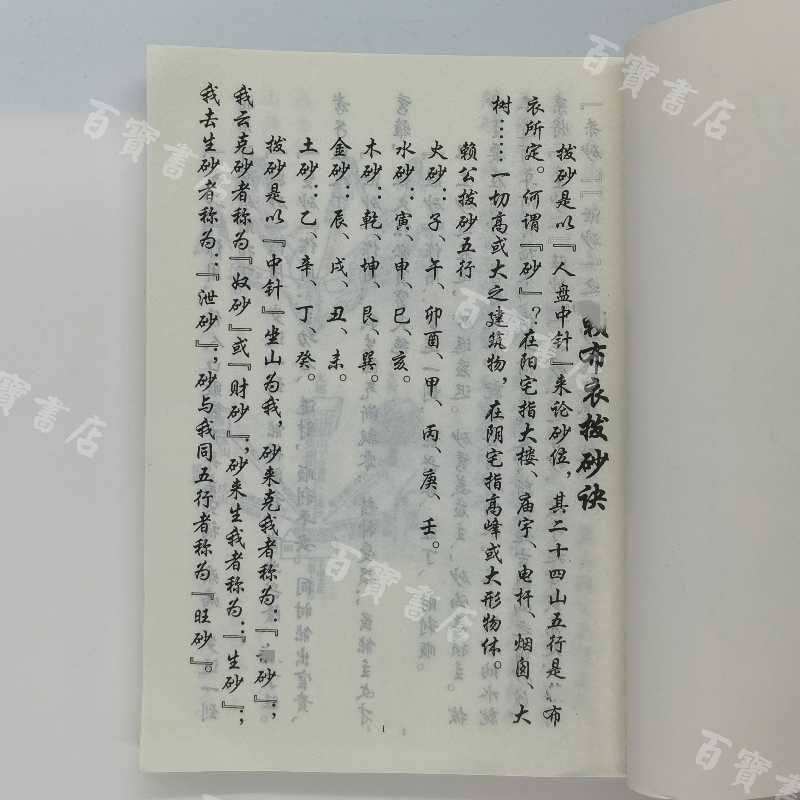 赖布衣拨砂诀
拔砂是以『人盘中针』来论砂位，其二十四山五行是布
衣所定。何谓『砂』？在阳宅指大楼、庙宇、电杆、烟囱、大
树……一切高或大之建筑物，在阴宅指高峰或大形物体。
赖公拔砂五行
火砂：子、午、卯酉、甲、丙、庚、壬。
水砂：寅、申、巳、亥。
木砂：乾、坤、艮、巽。
金砂：辰、戌、丑、未。
土砂：乙、辛、丁、癸。
拔砂是以『中针』坐山为我，砂来克我者称为：『砂』；
我云克砂者称为『奴砂』或『财砂』；砂来生我者称为：『生砂』；
我去生砂者称为：『泄砂』；砂与我同五行者称为『旺砂』。
1
百寳書店
百寳書店
百寳書店
百寳書店
百寳書店
百寳書店